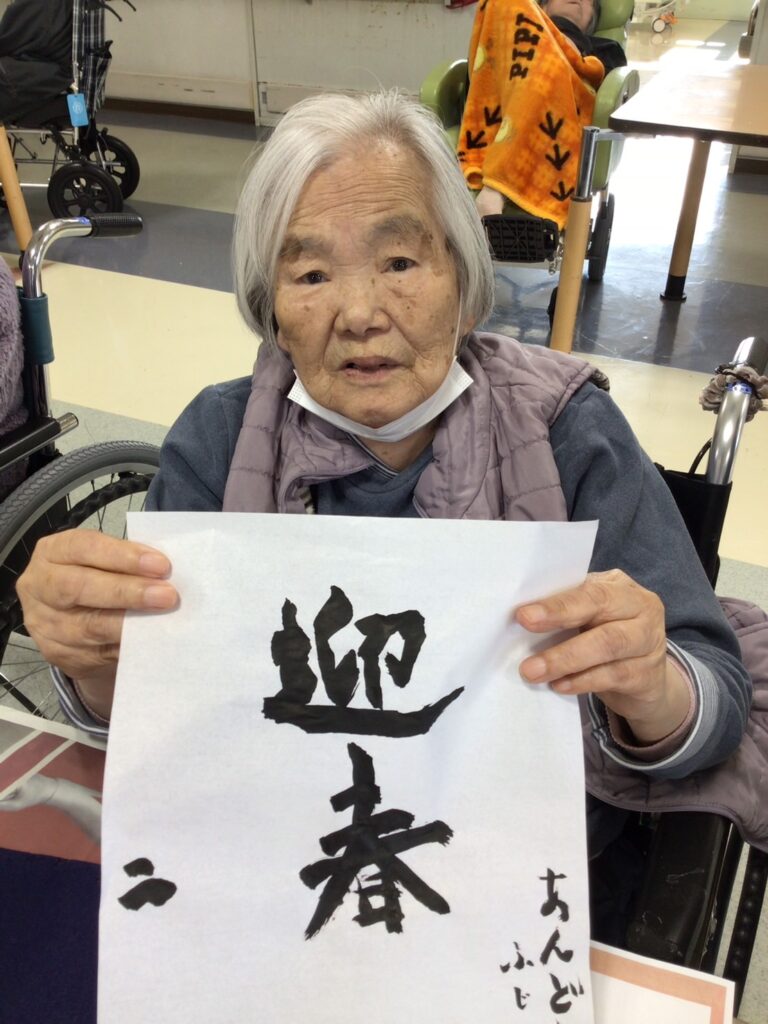 PIPI
迎春
二
あんど
ふじ